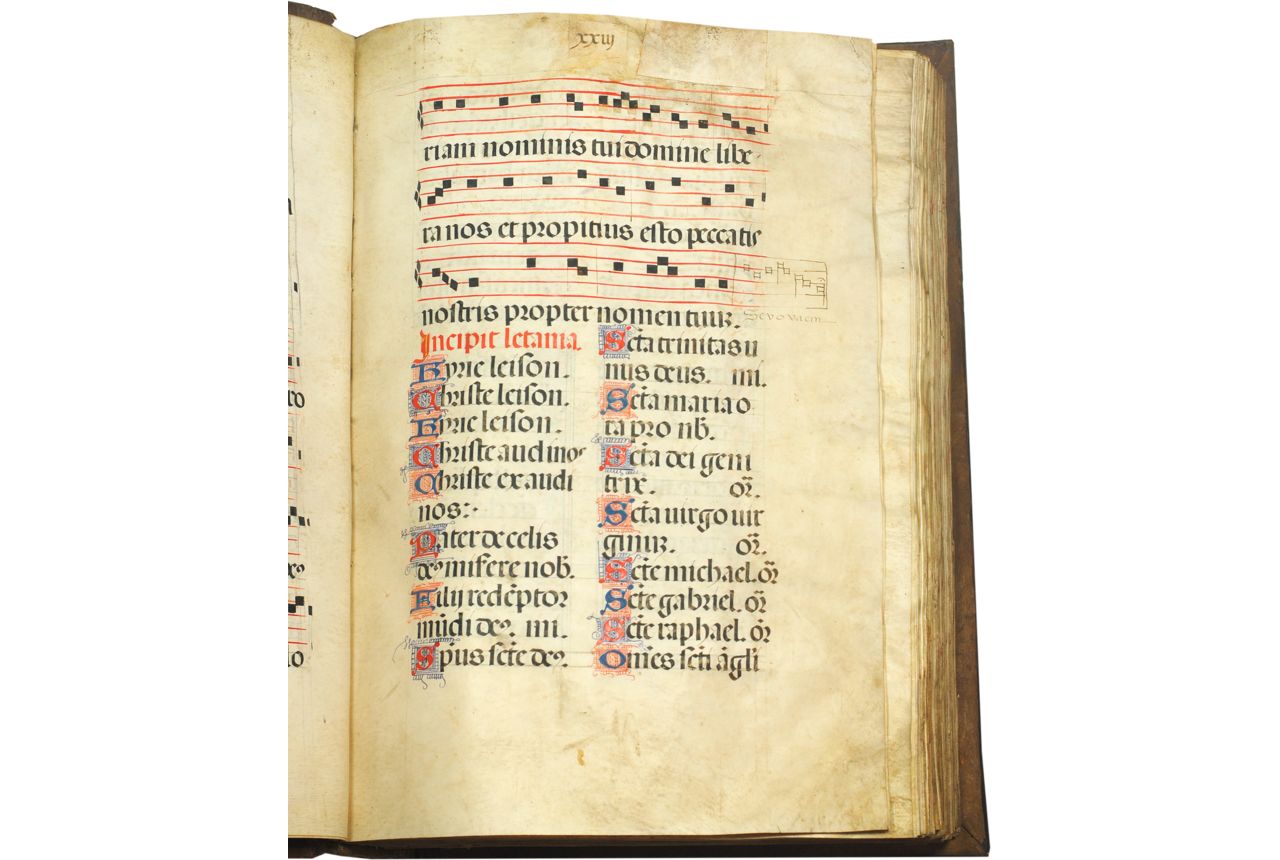 xxiij
riam nominis tui domine libe
ra nos et propitius esto peccatis
nostris propter nomen tuum.
Sevovaem
Incipit letania.
Kyrie leison.
Christe leison.
Kyrie leison.
Christe audi nos
Christe exaudi
nos:·
Pater de celis
de⁹ miserere nob̄.
Filij redēptor
mūdi de⁹. mi.
Sp̄us sc̄te de⁹.
Sc̄ta trinitas u
nus deus. mi.
Sc̄ta maria o
ra pro nb̄.
Sc̄ta dei geni
trix. or̄.
Sc̄ta uirgo uir
ginum. or̄.
Sc̄te michael. or̄
Sc̄te gabriel. or̄
Sc̄te raphael. or̄
Om̄es sc̄ti āgl̄i